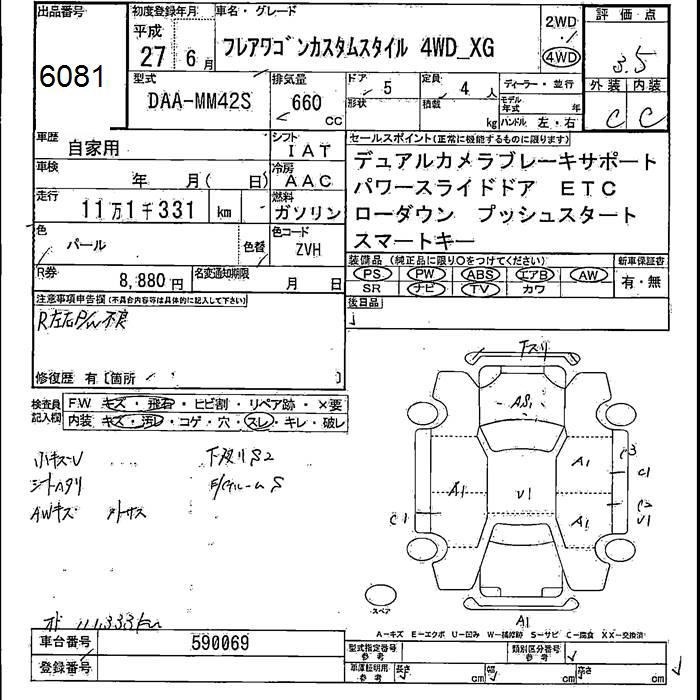 出品番号 初度登録年月 車名・グレード 2WD 評価点
平成
6081 27 年 6 月 フレアワゴンカスタムスタイル 4WD_XG 4WD 3.5
型式 排気量 ドア 5 定員 4 人 ディーラー・並行 外装 内装
DAA-MM42S 660 cc 形状 積載 kg モデル年式 年 C C
ハンドル 左・右
車歴 自家用 シフト IAT セールスポイント(正常に機能するものに限ります)
車検 年 月( 日) 冷房 AAC デュアルカメラブレーキサポート
走行 11万1千331 km 燃料 ガソリン パワースライドドア ETC
色 パール 色替 色コード ZVH ローダウン プッシュスタート
スマートキー
R券 8,880円 名変通知期限 月 日 装備品 (純正品に限り○をつけてください) 新車保証書
PS PW ABS エアB AW 有・無
SR ナビ TV カワ
注意事項申告欄(不具合内容等は具体的に記入して下さい) 後日品
R左右P/W不良
修復歴 有[箇所 ]
検査員記入欄 F.W キズ・飛石・ヒビ割・リペア跡・×要
内装 キズ・汚レ・コゲ・穴・スレ・キレ・破レ
小キズU 下廻りS2
シートヘタリ E/gルームS
AWキズ
下スリ
AS1
A1 A1 U1 A1
C3
C1
C2
U1
C1
スペア
A1
111,333km
A-キズ E-エクボ U-凹み W-補修跡 S-サビ C-腐食 XX-交換済
車台番号 590069 型式指定番号 参考 類別区分番号 参考
登録番号 車庫証明用 参考 長さ cm 幅 cm 高さ cm